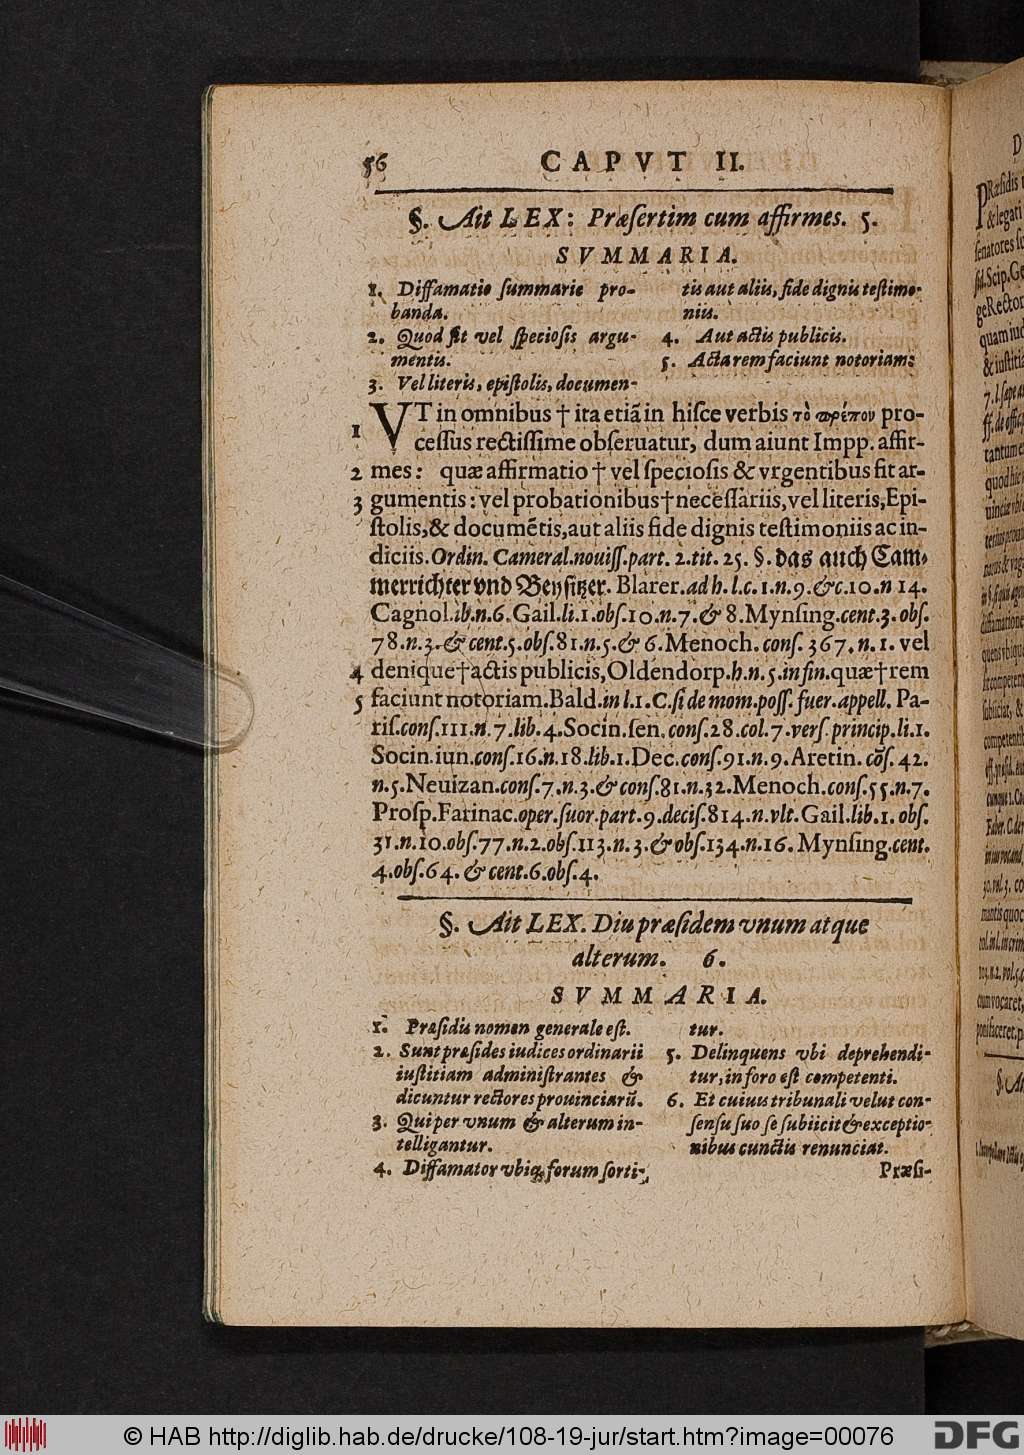 56 CAPVT II.
§. Ait LEX: Præsertim cum affirmes. 5.
SVMMARIA.
1. Diffamatio summarie pro-
banda.
2. Quod fit vel speciosis argu-
mentis.
3. Vel literis, epistolis, documen-
tis aut aliis, fide dignis testimo-
niis.
4. Aut actis publicis.
5. Acta rem faciunt notoriam:
VT in omnibus † ita etiã in hisce verbis τὸ πρέπον pro-
1 cessus rectissime obseruatur, dum aiunt Impp. affir-
2 mes: quæ affirmatio † vel speciosis & vrgentibus fit ar-
3 gumentis: vel probationibus † necessariis, vel literis, Epi-
stolis, & documẽtis, aut aliis fide dignis testimoniis ac in-
diciis. Ordin. Cameral. nouiss. part. 2. tit. 25. §. das auch Cam-
merrichter vnd Beysitzer. Blarer. ad h. l. c. 1. n. 9. &c. 10. n 14.
Cagnol. ib. n. 6. Gail. li. 1. obs. 10. n. 7. & 8. Mynsing. cent. 3. obs.
78. n. 3. & cent. 5. obs. 81. n. 5. & 6. Menoch. cons. 367. n. 1. vel
4 denique † actis publicis, Oldendorp. h. n. 5. in fin. quæ † rem
5 faciunt notoriam. Bald. in l. 1. C. si de mom. poss. fuer. appell. Pa-
ris. cons. 111. n. 7. lib. 4. Socin. sen. cons. 28. col. 7. vers. princip. li. 1.
Socin. iun. cons. 16. n. 18. lib. 1. Dec. cons. 91. n. 9. Aretin. cõs. 42.
n. 5. Neuizan. cons. 7. n. 3. & cons. 81. n. 32. Menoch. cons. 55. n. 7.
Prosp. Farinac. oper. suor. part. 9. decis. 814. n. vlt. Gail. lib. 1. obs.
31. n. 10. obs. 77. n. 2. obs. 113. n. 3. & obs. 134. n. 16. Mynsing. cent.
4. obs. 64. & cent. 6. obs. 4.
§. Ait LEX. Diu præsidem vnum atque
alterum. 6.
SVMMARIA.
1. Præsidis nomen generale est.
2. Sunt præsides iudices ordinarii
iustitiam administrantes &
dicuntur rectores prouinciarũ.
3. Qui per vnum & alterum in-
telligantur.
4. Diffamator vbiq; forum sorti-
tur.
5. Delinquens vbi deprehendi-
tur, in foro est competenti.
6. Et cuius tribunali velut con-
sensu suo se subiicit & exceptio-
nibus cunctis renunciat.
Præsi-
© HAB http://diglib.hab.de/drucke/108-19-jur/start.htm?image=00076
DFG